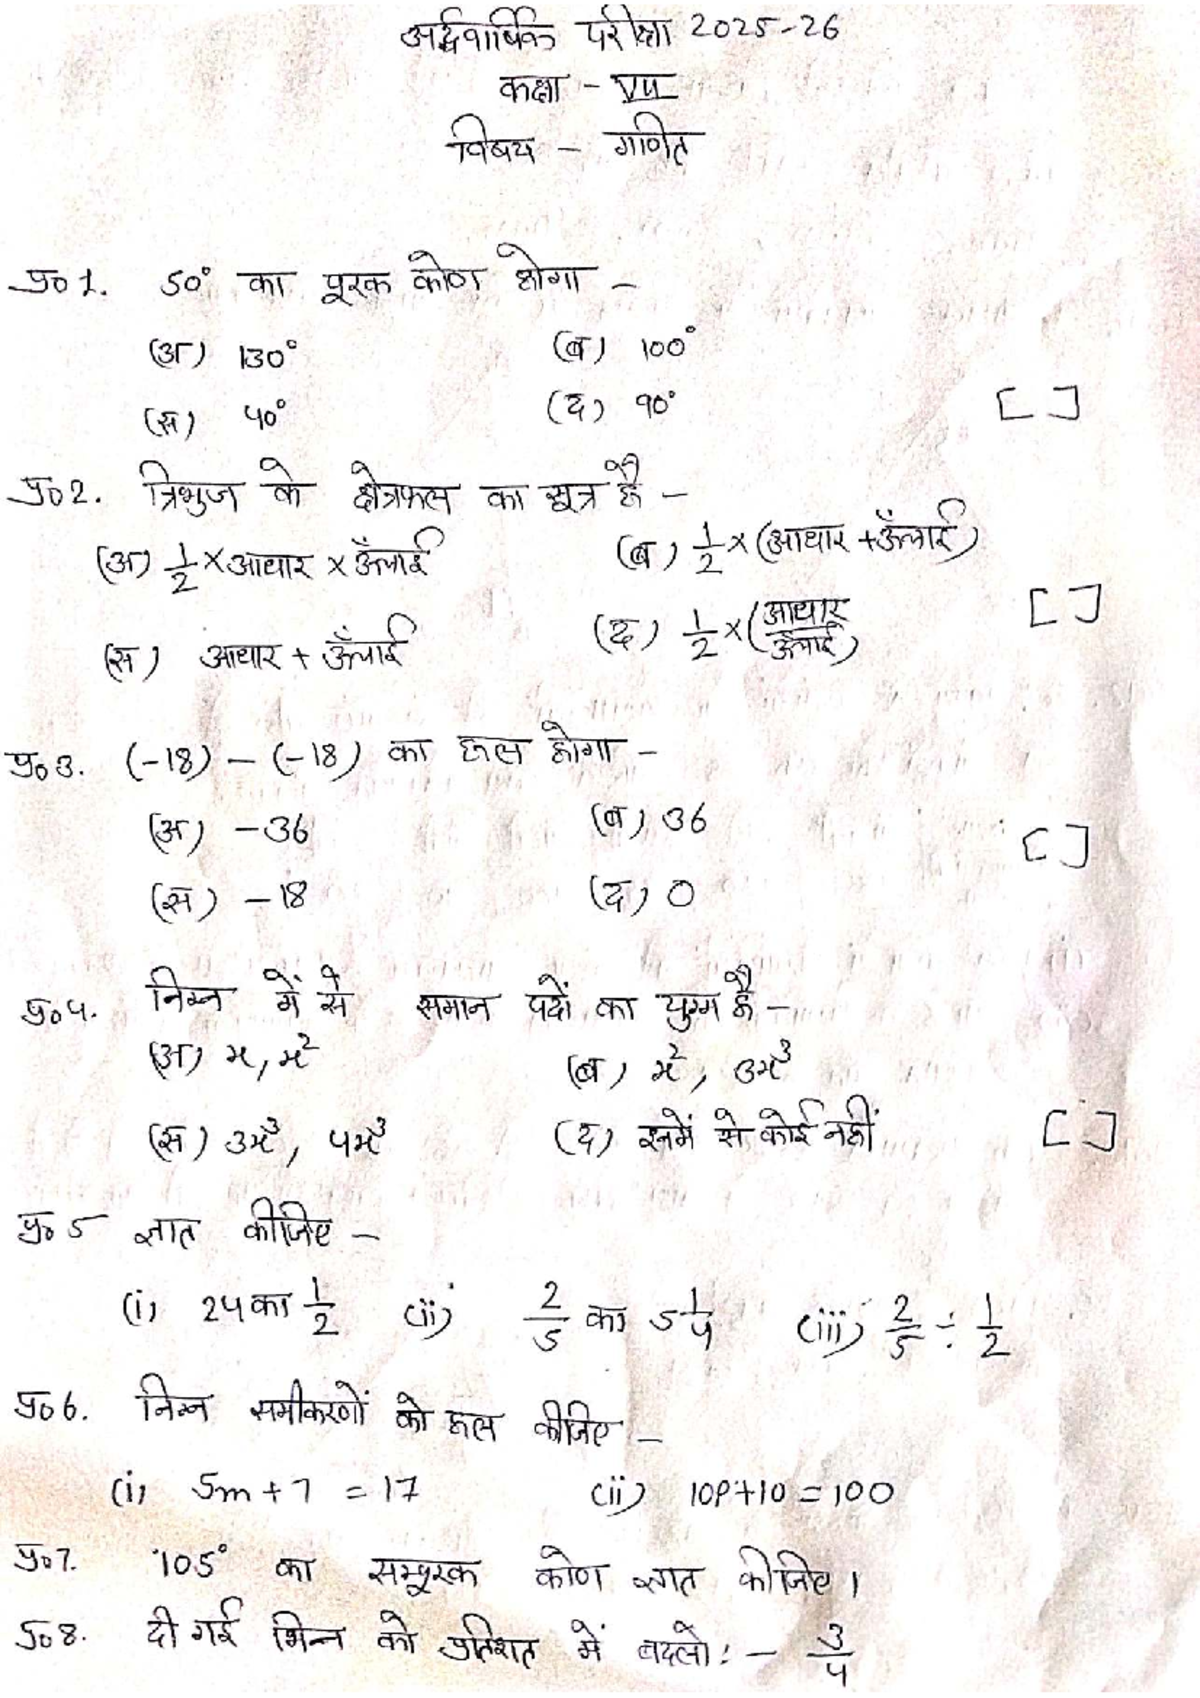 अर्द्धवार्षिक परीक्षा 2025-26
कक्षा - VII
विषय - गणित
प्र01. 50° का पूरक कोण होगा -
(अ) 130° (ब) 100°
(स) 40° (द) 90° [ ]
प्र02. त्रिभुज के क्षेत्रफल का सूत्र है -
(अ) 1/2 × आधार × ऊँचाई (ब) 1/2 × (आधार + ऊँचाई)
(स) आधार + ऊँचाई (द) 1/2 × (आधार/ऊँचाई) [ ]
प्र03. (-18) - (-18) का हल होगा -
(अ) -36 (ब) 36
(स) -18 (द) 0 [ ]
प्र04. निम्न में से समान पदों का युग्म है -
(अ) x, x² (ब) x², 3x³
(स) 3x³, 4x³ (द) इनमें से कोई नहीं [ ]
प्र05 ज्ञात कीजिए -
(i) 24 का 1/2 (ii) 2/5 का 5 1/4 (iii) 2/5 ÷ 1/2
प्र06. निम्न समीकरणों को हल कीजिए -
(i) 5m + 7 = 17 (ii) 10P + 10 = 100
प्र07. 105° का सम्पूरक कोण ज्ञात कीजिए।
प्र08. दी गई भिन्न को प्रतिशत में बदलो :- 3/4